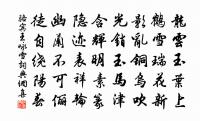 龍雲玉葉上
鶴雪瑞花新
影亂銅烏吹
光銷玉馬津
含輝明素篆
隱迹表祥輪
幽蘭不可儷
徒自繞陽春
駱賓王詠雪詞典網